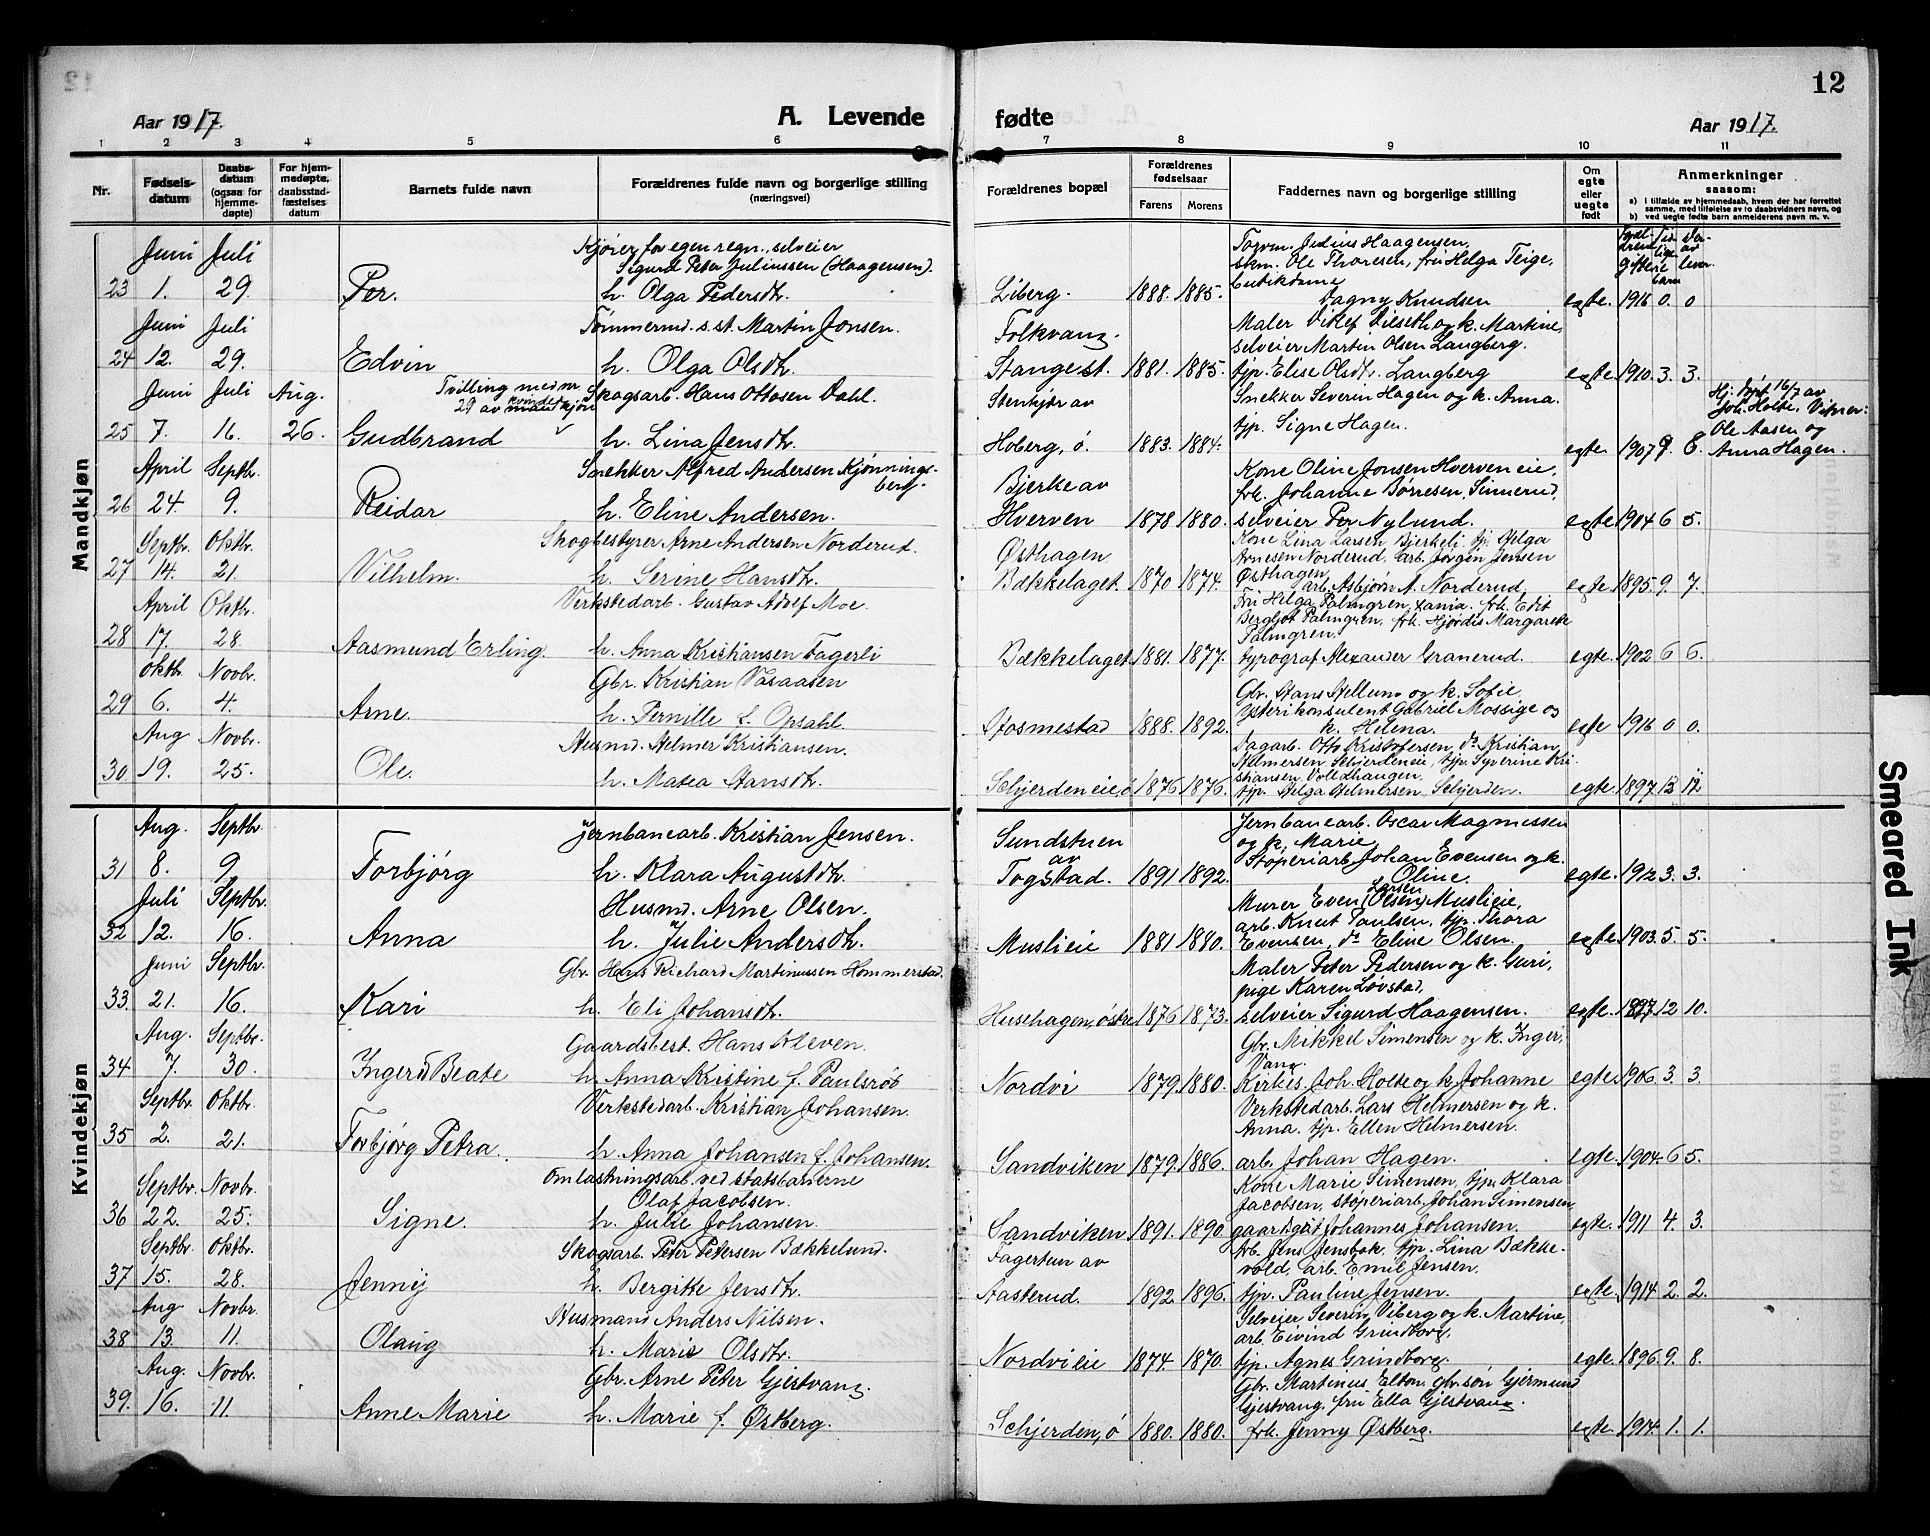 12
Aar 1917.
A. Levende fødte
Aar 1917.
1 2 3 4 5 6 7 8 9 10 11
Nr.
Fødsels-datum
Daabs-datum (ogsaa for hjemme-døpte)
For hjem-medøpte, daabsstad-fæstelses datum
Barnets fulde navn
Forældrenes fulde navn og borgerlige stilling (næringsvei)
Forældrenes bopæl
Forældrenes fødselsaar
Farens Morens
Faddernes navn og borgerlige stilling
Om egte eller uegte født
Anmerkninger saasom:
a) i tilfælde av hjemmedaab, hvem der har forrettet samme, med tilføielse av to daabsvidners navn, og
b) ved uegte fødte barn anmelderens navn m. v.
Mandkjøn
Juni Juli Kjører for egen regn., selveier
Sigurd Peter Juliussen (Haagensen).
23 1. 29. Per. h. Olga Pedersdtr. Liberg. 1888. 1885.
Ole Thoresen, fru Helga Teige,
Dagny Knudsen egte. 1916 0. 0
Juni Juli Tømmermd. s. st. Martin Jonsen. Folkvang
24 12. 29. Edvin h. Olga Olsdtr. Stange st. 1881. 1885.
Maler og k. Martine,
selveier Martin Olsen Langberg.
tjp. Elise Olsdtr. Langberg egte. 1910. 3. 3.
Juni Juli Aug. Tvilling med nr
29 av kvindekjøn
Skogsarb. Hans Ottosen Dahl. Stenkjær av
25 7. 16. 26. Gudbrand h. Lina Jensdtr. Hoberg, ø. 1883. 1884.
Snekker Severin Hagen og k. Anna.
tjp. Signe Hagen. egte. 1907 9. 8.
Hj. døpt 16/7 av
Joh. Holte. Vitner:
Ole Aasen og
Anna Hagen.
April Septbr. Snekker Alfred Andersen Kjønnings-
berg. Bjerke av
26 24. 9. Reidar h. Eline Andersen. Hverven 1878 1880.
Kone Oline Jonsen Hverveneie,
frk. Johanne Børresen, Sinnerud,
selveier Per Nylund. egte. 1904 6 5.
Septbr. Oktbr. Skogbestyrer Arne Andersen Norderud. Østhagen
27 14. 21. Vilhelm. h. Serine Hansdtr. Bækkelaget. 1870 1874.
Kone Lina Larsen Bjerkeli, tjp. Helga
Arnesen Norderud, arb. Jørgen Jensen
Østhagen, arb. Asbjørn A. Norderud, egte. 1895. 9. 7.
April Oktbr. Verkstedarb. Gustav Adolf Moe.
28 17. 28. Aasmund Erling. h. Anna Kristiansen Fagerli Bækkelaget. 1881. 1877.
Fru Helga Palmgren, frk. Edit
Bergljot Palmgren, frk. Hjørdis Margarete
Palmgren.
typograf Alexander Granerud. egte. 1902 6 6.
Oktbr. Novbr. Gbr. Kristian Vasaasen
29 6. 4. Arne. h. Pernille f. Opsahl. Hosmestad 1888. 1892.
Gbr. Hans Hellum og k. Sofie
Ysterikonsulent Gabriel Mossige og
k. Helena. egte 1916 0 0.
Aug Novbr. Husmd. Helmer Kristiansen.
30 19. 25. Ole. h. Matea Hansdtr. Schjerdeneie, ø 1876 1876.
Dagarb. Otto Kristofersen, do Kristian
Helmersen Schjerdeneie, tjp. Syverine Kri-
stiansen Voldhaugen,
tjp. Helga Helmersen, Schjerden. egte. 1897. 13 12
Kvindekjøn
Aug. Septbr. Jernbanearb. Kristian Jensen. Sundstuen
av
31 8. 9 Torbjørg h. Klara Augustdtr. Togstad. 1891 1892.
Jernbanearb. Oscar Magnussen
og k. Marie,
Støperiarb. Johan Evensen og k.
Oline. egte. 1912 3. 3.
Juli Septbr. Husmd. Arne Olsen.
32 12. 16. Anna h. Julie Andersdtr. Muslieie 1881 1880.
Larsen
Murer Even (Olsen) Muslieie,
arb. Knut Paulsen, tjp. Thora
Evensen, do Eline Olsen. egte 1903. 5. 5.
Juni Septbr. Gbr. Hans Richard Martinussen Hommerstad.
33. 21. 16. Kari h. Eli Johansdtr. Husehagen, østre 1876 1873.
Maler Peter Pedersen og k. Guri,
pige Karen Løvstad,
selveier Sigurd Haagensen. egte. 1897 12 10.
Aug. Septbr. Gaardsbest. Hans Kleven.
34 7. 30. Ingerd Beate h. Anna Kristine f. Paulsrød Nordvi 1879. 1880.
Gbr. Mikkel Simensen og k. Inger,
Vang
Kirkes. Joh. Holte og k. Johanne egte. 1906. 3. 3
Septbr. Oktbr. Verkstedarb. Kristian Johansen.
35 2. 21. Torbjørg Petra. h. Anna Johansen f. Johansen. Sandviken 1879. 1886.
Verkstedarb. Lars Helmersen og k.
Anna. tjp. Ellen Helmersen.
arb. Johan Hagen. egte. 1904. 6 5.
Septbr. Novbr. Omlastningsarb. ved statsbanerne
Olaf Jacobsen.
36 22. 25. Signe. h. Julie Johansen. Sandviken 1891. 1890.
Kone Marie Simensen, tjp. Klara
Jacobsen, støperiarb. Johan Simensen,
Johannes Johansen. egte. 1911 4. 3.
Septbr. Oktbr. Skogsarb. Peter Petersen Bækkelund. Fagertun av
37 15. 28. Jenny h. Bergitte Jensdtr. Aasterud. 1892. 1896.
Arb. Jens Jensbak, tjp. Lina Bække-
vold, arb. Emil Jensen,
tjp. Pauline Jensen. egte. 1914 2. 2.
Aug. Novbr. Husmand Anders Nilsen.
38 13. 11. Olaug h. Marie Olsdtr. Nordvieie 1874 1870.
Selveier Severin Viberg og k. Martine,
arb. Eivind Grindborg,
tjp. Agnes Grindborg. egte. 1896. 9. 8.
Aug. Novbr. Gbr. Arne Peter Gjestvang.
39. 16. 11. Anne Marie h. Marie f. Østberg. Schjerden, ø 1880. 1880.
Gbr. Martinus Elton, gbr.søn Gjermund
Gjestvang, fru Ella Gjestvang.
frk. Jenny Østberg. egte. 1914. 1. 1.
Smeared Ink